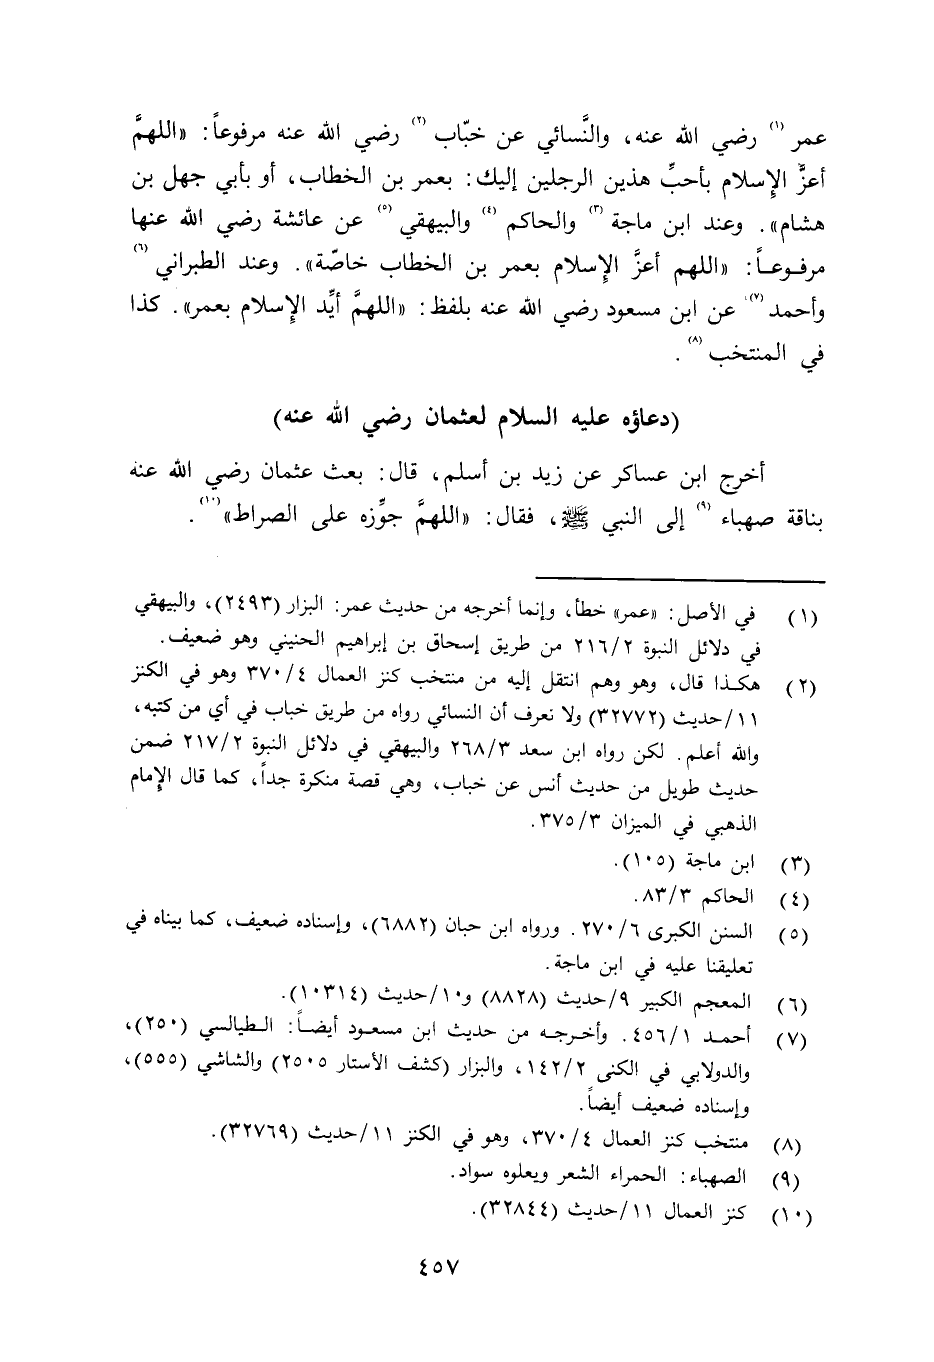 عمر (١) رضي الله عنه، والنَّسائي عن خبّاب (٢) رضي الله عنه مرفوعاً: «اللهمَّ
أعزَّ الإسلام بأحبِّ هذين الرجلين إليك: بعمر بن الخطاب، أو بأبي جهل بن
هشام». وعند ابن ماجة (٣) والحاكم (٤) والبيهقي (٥) عن عائشة رضي الله عنها
مرفوعاً: «اللهم أعزَّ الإسلام بعمر بن الخطاب خاصّة». وعند الطبراني (٦)
وأحمد (٧) عن ابن مسعود رضي الله عنه بلفظ: «اللهمَّ أيِّد الإسلام بعمر». كذا
في المنتخب (٨).
(دعاؤه عليه السلام لعثمان رضي الله عنه)
أخرج ابن عساكر عن زيد بن أسلم، قال: بعث عثمان رضي الله عنه
بناقة صهباء (٩) إلى النبي ﷺ، فقال: «اللهمَّ جوِّزه على الصراط» (١٠).
(١) في الأصل: «عمر» خطأ، وإنما أخرجه من حديث عمر: البزار (٢٤٩٣)، والبيهقي
في دلائل النبوة ٢١٦/٢ من طريق إسحاق بن إبراهيم الحنيني وهو ضعيف.
(٢) هكذا قال، وهو وهم انتقل إليه من منتخب كنز العمال ٣٧٠/٤ وهو في الكنز
١١/حديث (٣٢٧٧٢) ولا نعرف أن النسائي رواه من طريق خباب في أي من كتبه،
والله أعلم. لكن رواه ابن سعد ٢٦٨/٣ والبيهقي في دلائل النبوة ٢١٧/٢ ضمن
حديث طويل من حديث أنس عن خباب، وهي قصة منكرة جداً، كما قال الإمام
الذهبي في الميزان ٣٧٥/٣.
(٣) ابن ماجة (١٠٥).
(٤) الحاكم ٨٣/٣.
(٥) السنن الكبرى ٢٧٠/٦. ورواه ابن حبان (٦٨٨٢)، وإسناده ضعيف، كما بيناه في
تعليقنا عليه في ابن ماجة.
(٦) المعجم الكبير ٩/حديث (٨٨٢٨) و١٠/حديث (١٠٣١٤).
(٧) أحمد ٤٥٦/١. وأخرجه من حديث ابن مسعود أيضاً: الطيالسي (٢٥٠)،
والدولابي في الكنى ١٤٢/٢، والبزار (كشف الأستار ٢٥٠٥) والشاشي (٥٥٥)،
وإسناده ضعيف أيضاً.
(٨) منتخب كنز العمال ٣٧٠/٤، وهو في الكنز ١١/حديث (٣٢٧٦٩).
(٩) الصهباء: الحمراء الشعر ويعلوه سواد.
(١٠) كنز العمال ١١/حديث (٣٢٨٤٤).
٤٥٧